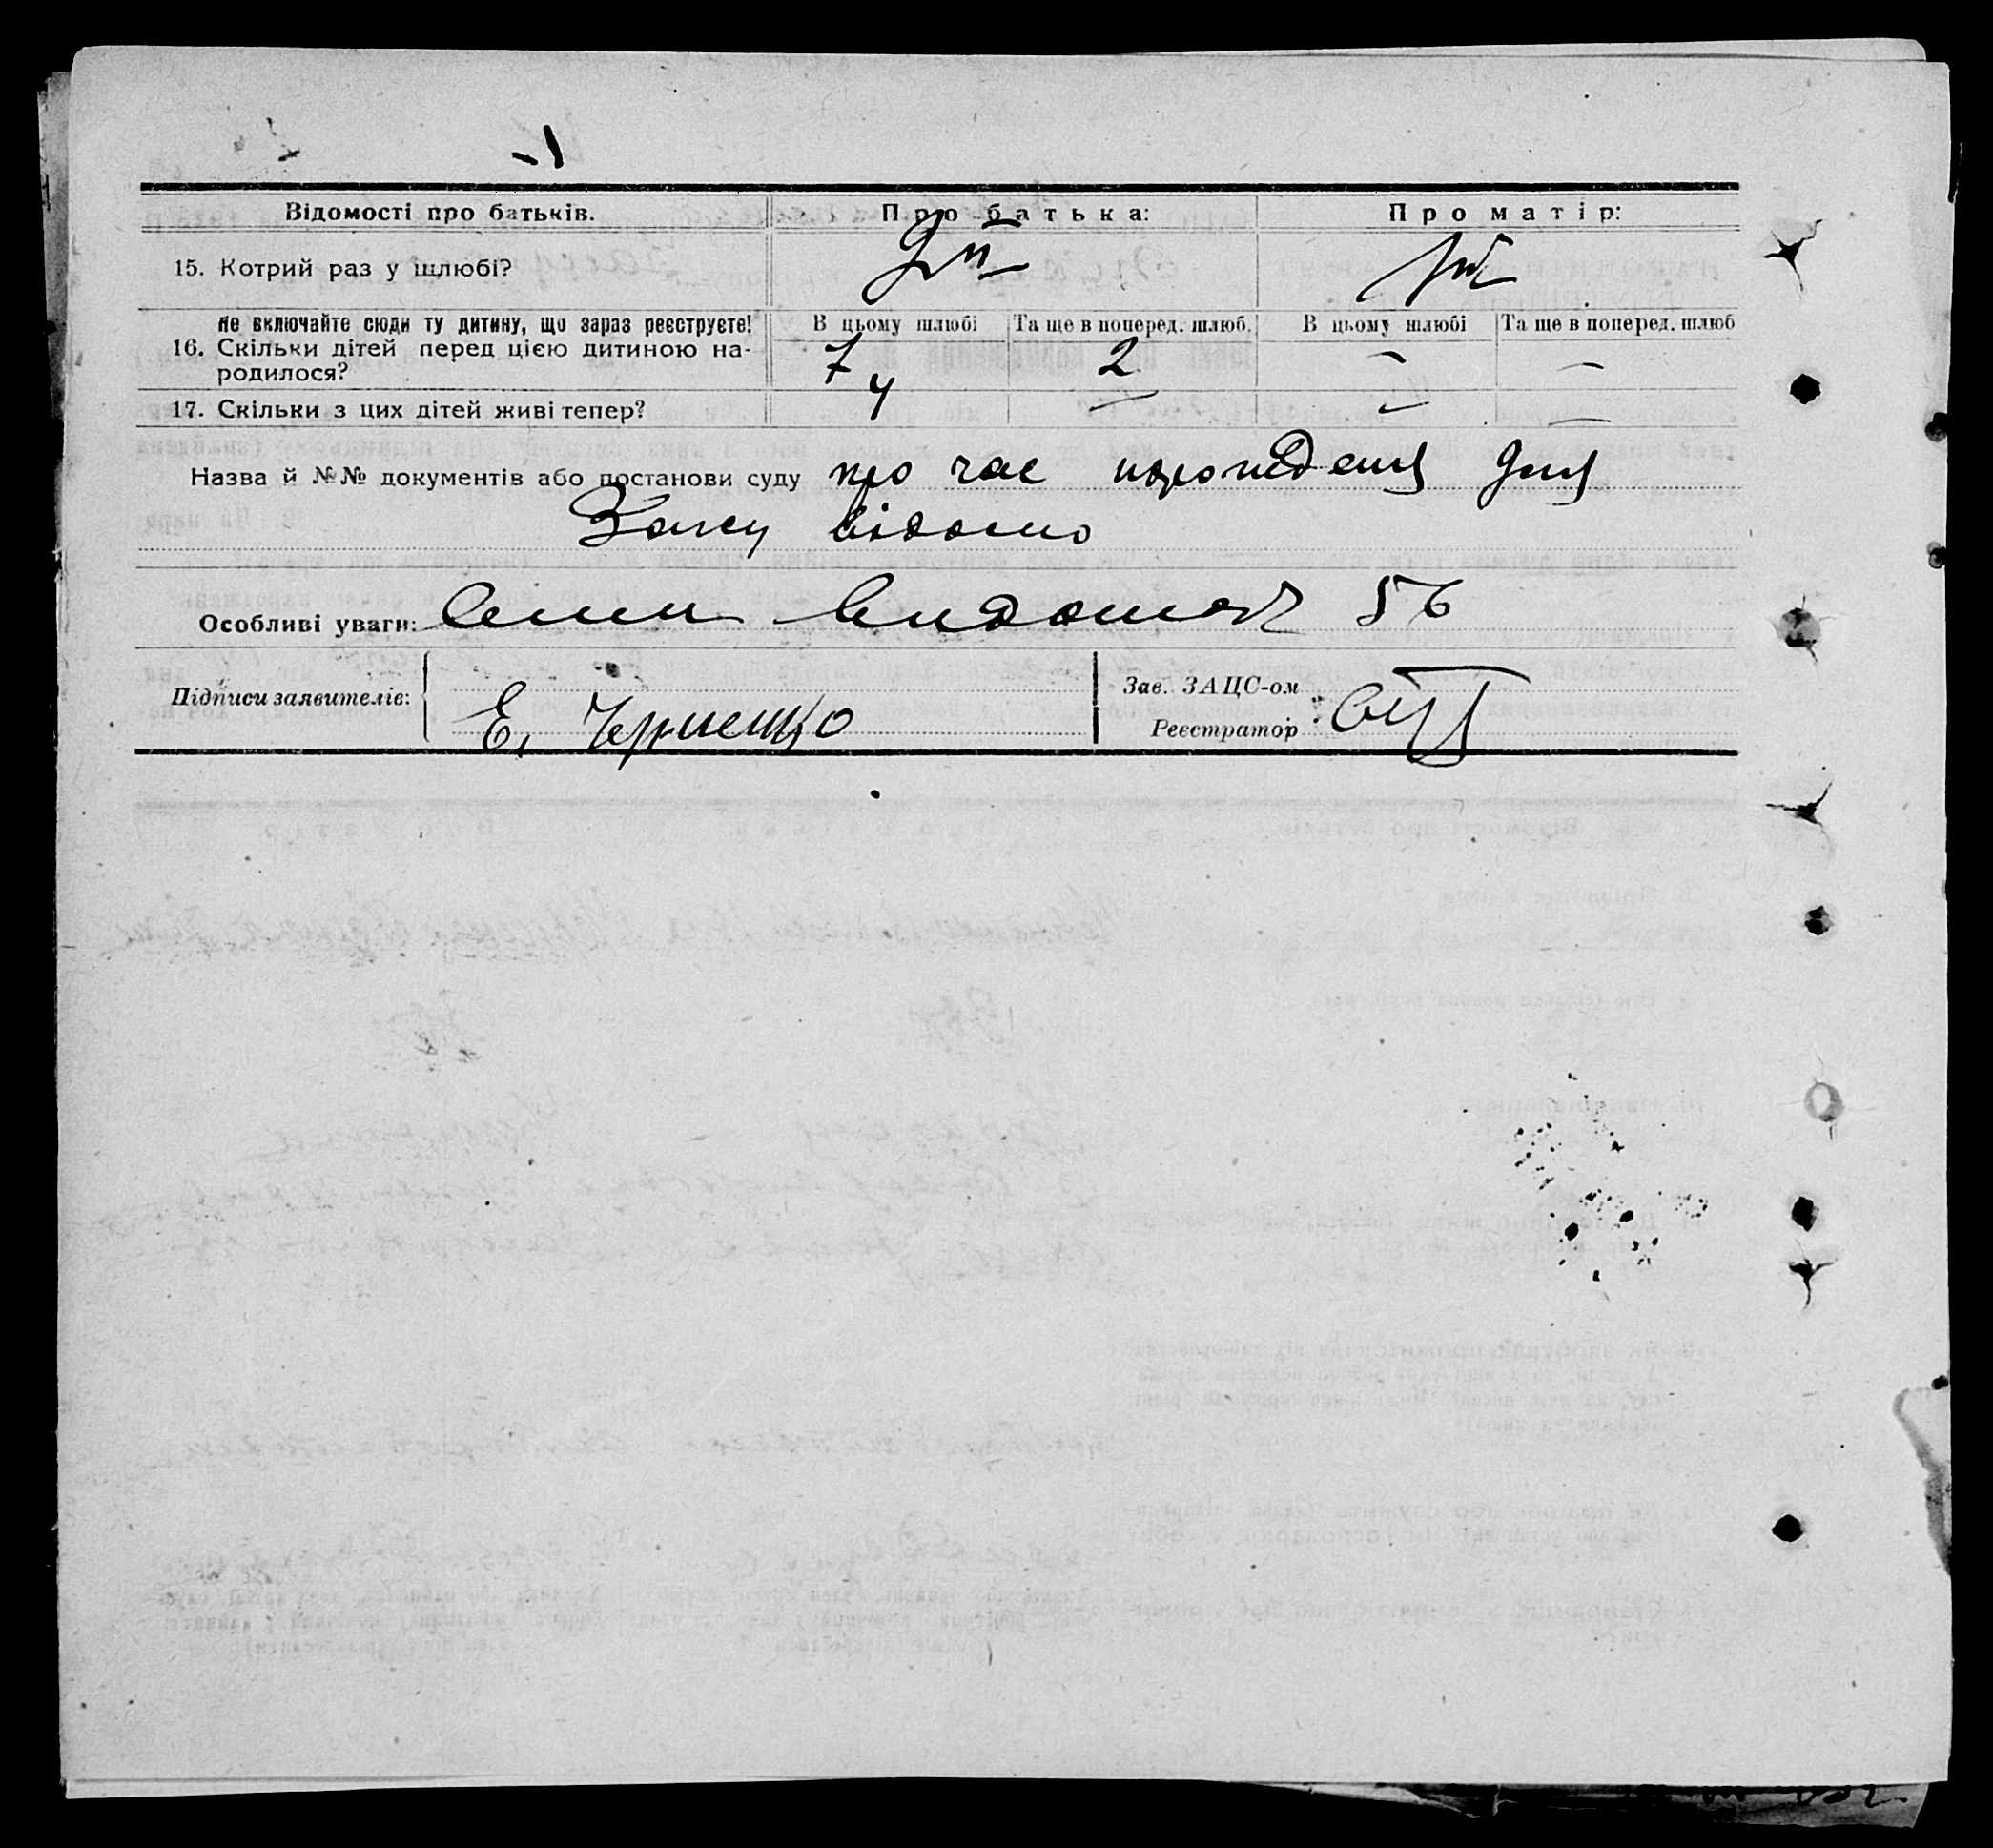 Відомості про батьків. Про батька: Про матір:
15. Котрий раз у шлюбі?
Не включайте сюди ту дитину, що зараз реєструєте! В цьому шлюбі Та ще в поперед. шлюб. В цьому шлюбі Та ще в поперед. шлюб
16. Скільки дітей перед цією дитиною на-
родилося? 7 4 2 – –
17. Скільки з цих дітей живі тепер? 4 – – –
Назва й №№ документів або постанови суду про час народження
Загсу відомо
Особливі уваги: 56
Підписи заявителів: Е. Черненко
Зав. ЗАЦС-ом
Реєстратор